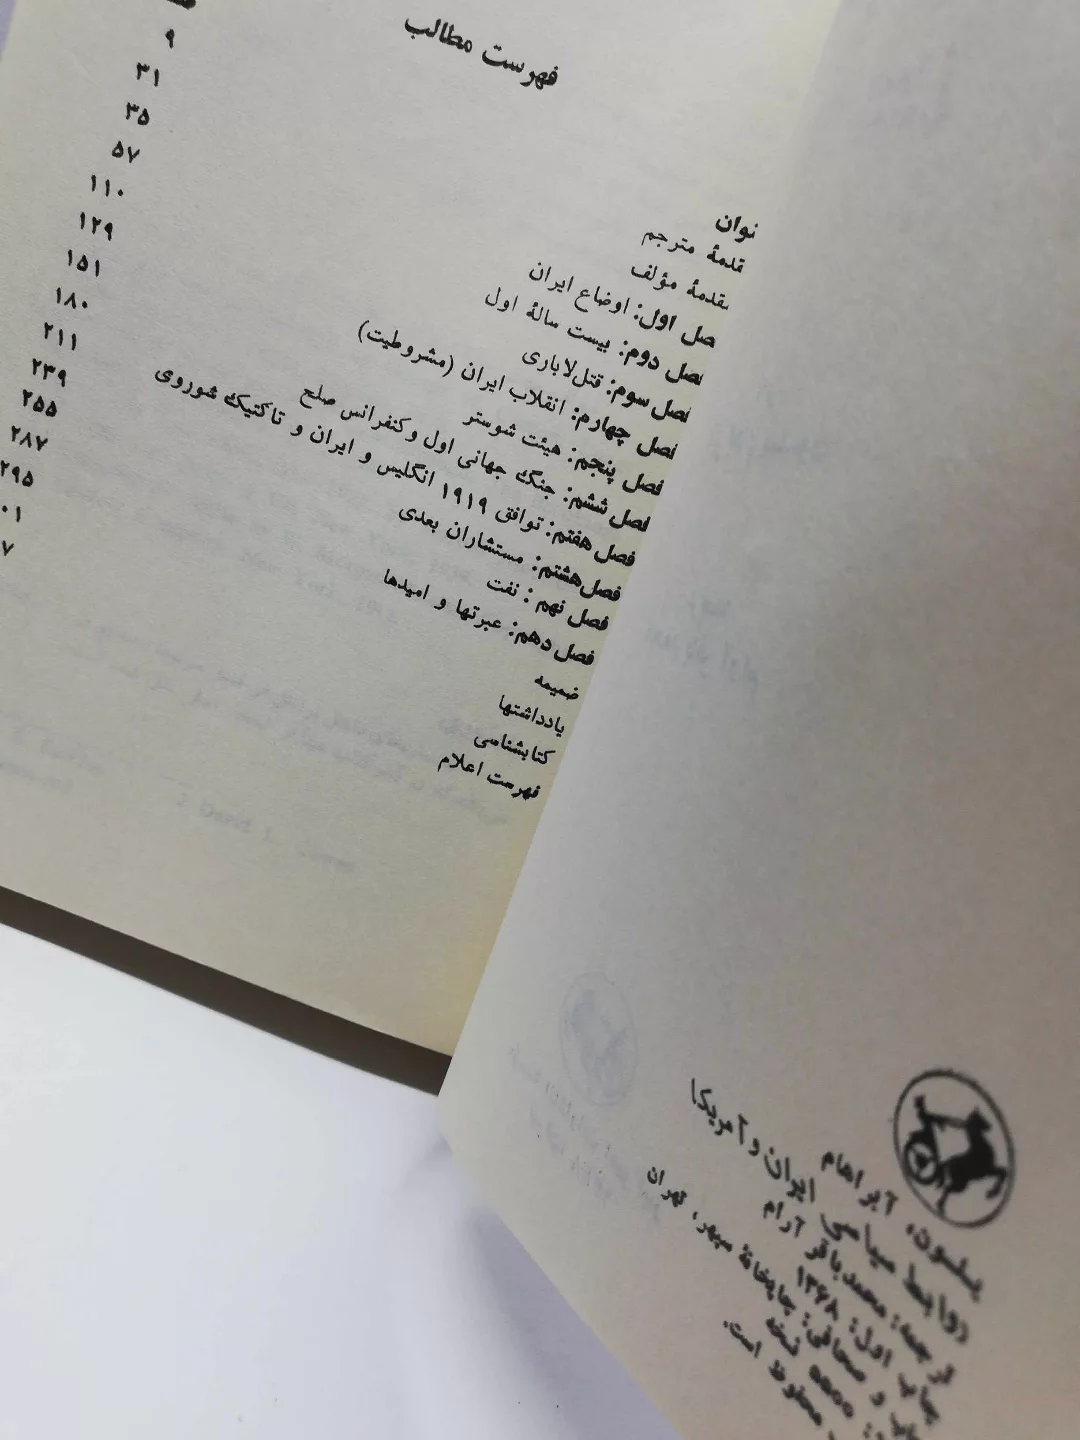 فهرست مطالب
نوان
قدمهٔ مترجم ۹
قدمهٔ مؤلف ۳۱
صل اول: اوضاع ایران ۳۵
صل دوم: بیست سالهٔ اول ۵۷
صل سوم: قتل‌لاباری ۱۱۰
فصل چهارم: انقلاب ایران (مشروطیت) ۱۲۹
فصل پنجم: هیئت شوستر ۱۵۱
فصل ششم: جنگ جهانی اول و کنفرانس صلح ۱۸۰
فصل هفتم: توافق ۱۹۱۹ انگلیس و ایران و تاکتیک شوروی ۲۱۱
فصل هشتم: مستشاران بعدی ۲۳۹
فصل نهم: نفت ۲۵۵
فصل دهم: عبرتها و امیدها ۲۸۷
ضمیمه ۲۹۵
یادداشتها ۰۱
کتابشناسی ۷
فهرست اعلام
یسلسون، آبراهام
روابط سیاسی ایران و آمریکا
ترجمه: محمدباقر آرام
چاپ اول: ۱۳۶۸
چاپ و صحافی: چاپخانهٔ سپهر، تهران
۵۵۰۰ نسخه
محفوظ است.